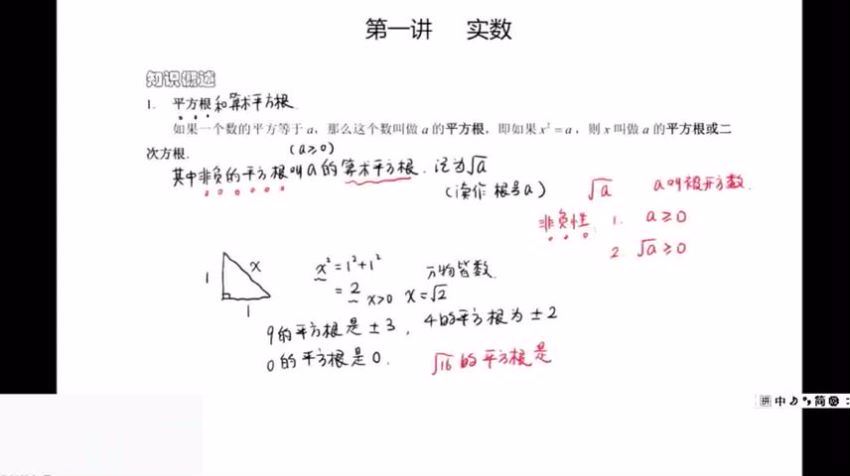 第一讲 实数
知识概述
1. 平方根和算术平方根
如果一个数的平方等于 a，那么这个数叫做 a 的平方根，即如果 x² = a ，则 x 叫做 a 的平方根或二
次方根． (a≥0)
其中非负的平方根叫a的算术平方根．记为√a
(读作 根号a)
√a a叫被开方数．
非负性： 1. a≥0
2. √a≥0
1 x 1
x²=1²+1²
=2 x>0 x=√2
万物皆数．
9的平方根是±3， 4的平方根为±2
0的平方根是0． √16的平方根是
拼 中 简